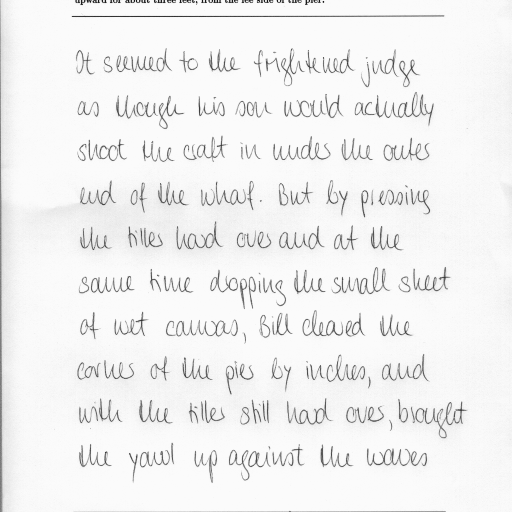 upward for about three feet, from the lee side of the pier.
It seemed to the frightened judge
as though his son would actually
shoot the craft in under the outer
end of the wharf. But by pressing
the tiller hard over and at the
same time dropping the small sheet
of wet canvas, Bill cleared the
corner of the pier by inches, and
with the tiller still hard over, brought
the yawl up against the waves